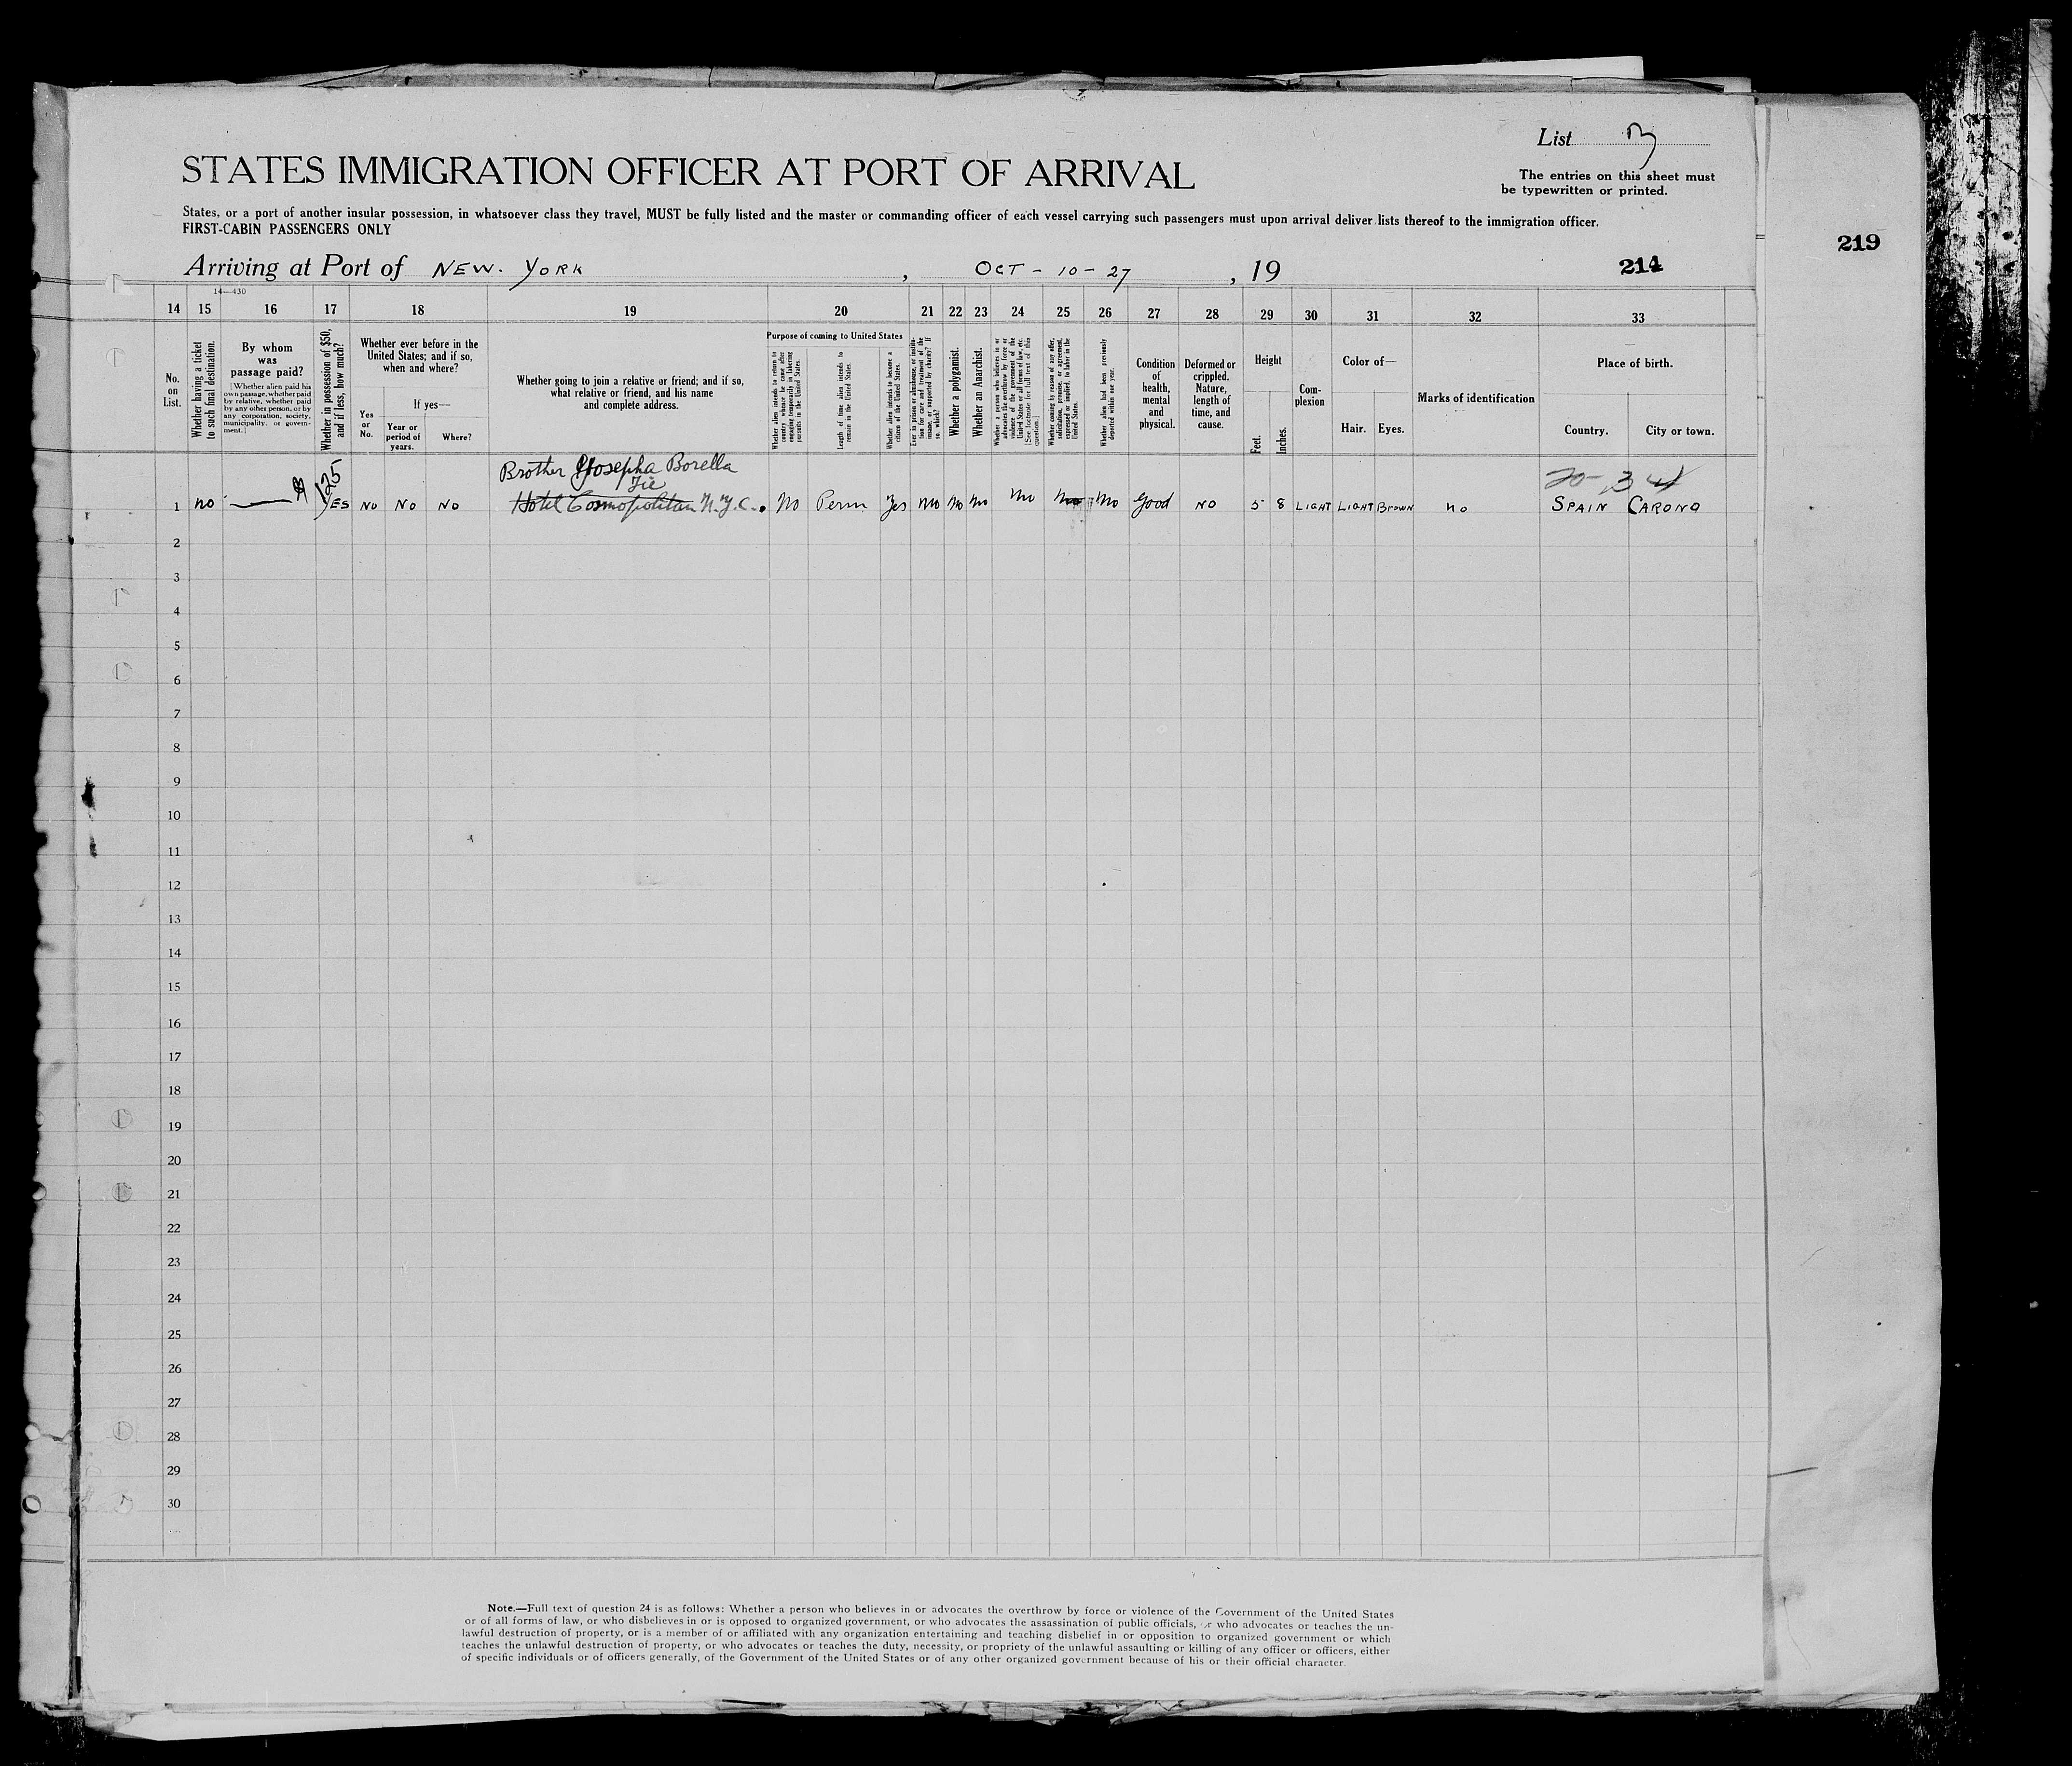 List
STATES IMMIGRATION OFFICER AT PORT OF ARRIVAL
The entries on this sheet must
be typewritten or printed.
States, or a port of another insular possession, in whatsoever class they travel, MUST be fully listed and the master or commanding officer of each vessel carrying such passengers must upon arrival deliver lists thereof to the immigration officer.
FIRST-CABIN PASSENGERS ONLY
219
Arriving at Port of NEW. YORK , OCT-10-27 , 19
214
14—430
14 15 16 17 18 19 20 21 22 23 24 25 26 27 28 29 30 31 32 33
No.
on
List.
Whether having a ticket
to such final destination.
By whom
was
passage paid?
[Whether alien paid his
own passage, whether paid
by relative, whether paid
by any other person, or by
any corporation, society,
municipality, or govern-
ment.]
Whether in possession of $50,
and if less, how much?
Whether ever before in the
United States; and if so,
when and where?
Yes
or
No.
If yes—
Year or
period of
years.
Where?
Whether going to join a relative or friend; and if so,
what relative or friend, and his name
and complete address.
Purpose of coming to United States
Whether alien intends to return to
country whence he came after
engaging temporarily in laboring
pursuits in the United States.
Length of time alien intends to
remain in the United States.
Whether alien intends to become a
citizen of the United States.
Ever in prison or almshouse, or institu-
tion for care and treatment of the
insane, or supported by charity? If
so, which?
Whether a polygamist.
Whether an Anarchist.
Whether a person who believes in or
advocates the overthrow by force or
violence of the government of the
United States or all forms of law, etc.
[See footnote for full text of this
question.]
Whether coming by reason of any offer,
solicitation, promise, or agreement,
expressed or implied, to labor in the
United States.
Whether alien had been previously
deported within one year.
Condition
of
health,
mental
and
physical.
Deformed or
crippled.
Nature,
length of
time, and
cause.
Height
Feet.
Inches.
Com-
plexion
Color of—
Hair. Eyes.
Marks of identification
Place of birth.
Country. City or town.
125
Brother Josepha Borella
20-34
1 no YES NO NO NO Hotel Cosmopolitan N.Y.C. No Perm Yes No No No No No No Good NO 5 8 LIGHT LIGHT BROWN no SPAIN CARONO
2
3
4
5
6
7
8
9
10
11
12
13
14
15
16
17
18
19
20
21
22
23
24
25
26
27
28
29
30
Note.—Full text of question 24 is as follows: Whether a person who believes in or advocates the overthrow by force or violence of the Government of the United States
or of all forms of law, or who disbelieves in or is opposed to organized government, or who advocates the assassination of public officials, or who advocates or teaches the un-
lawful destruction of property, or is a member of or affiliated with any organization entertaining and teaching disbelief in or opposition to organized government or which
teaches the unlawful destruction of property, or who advocates or teaches the duty, necessity, or propriety of the unlawful assaulting or killing of any officer or officers, either
of specific individuals or of officers generally, of the Government of the United States or of any other organized government because of his or their official character.